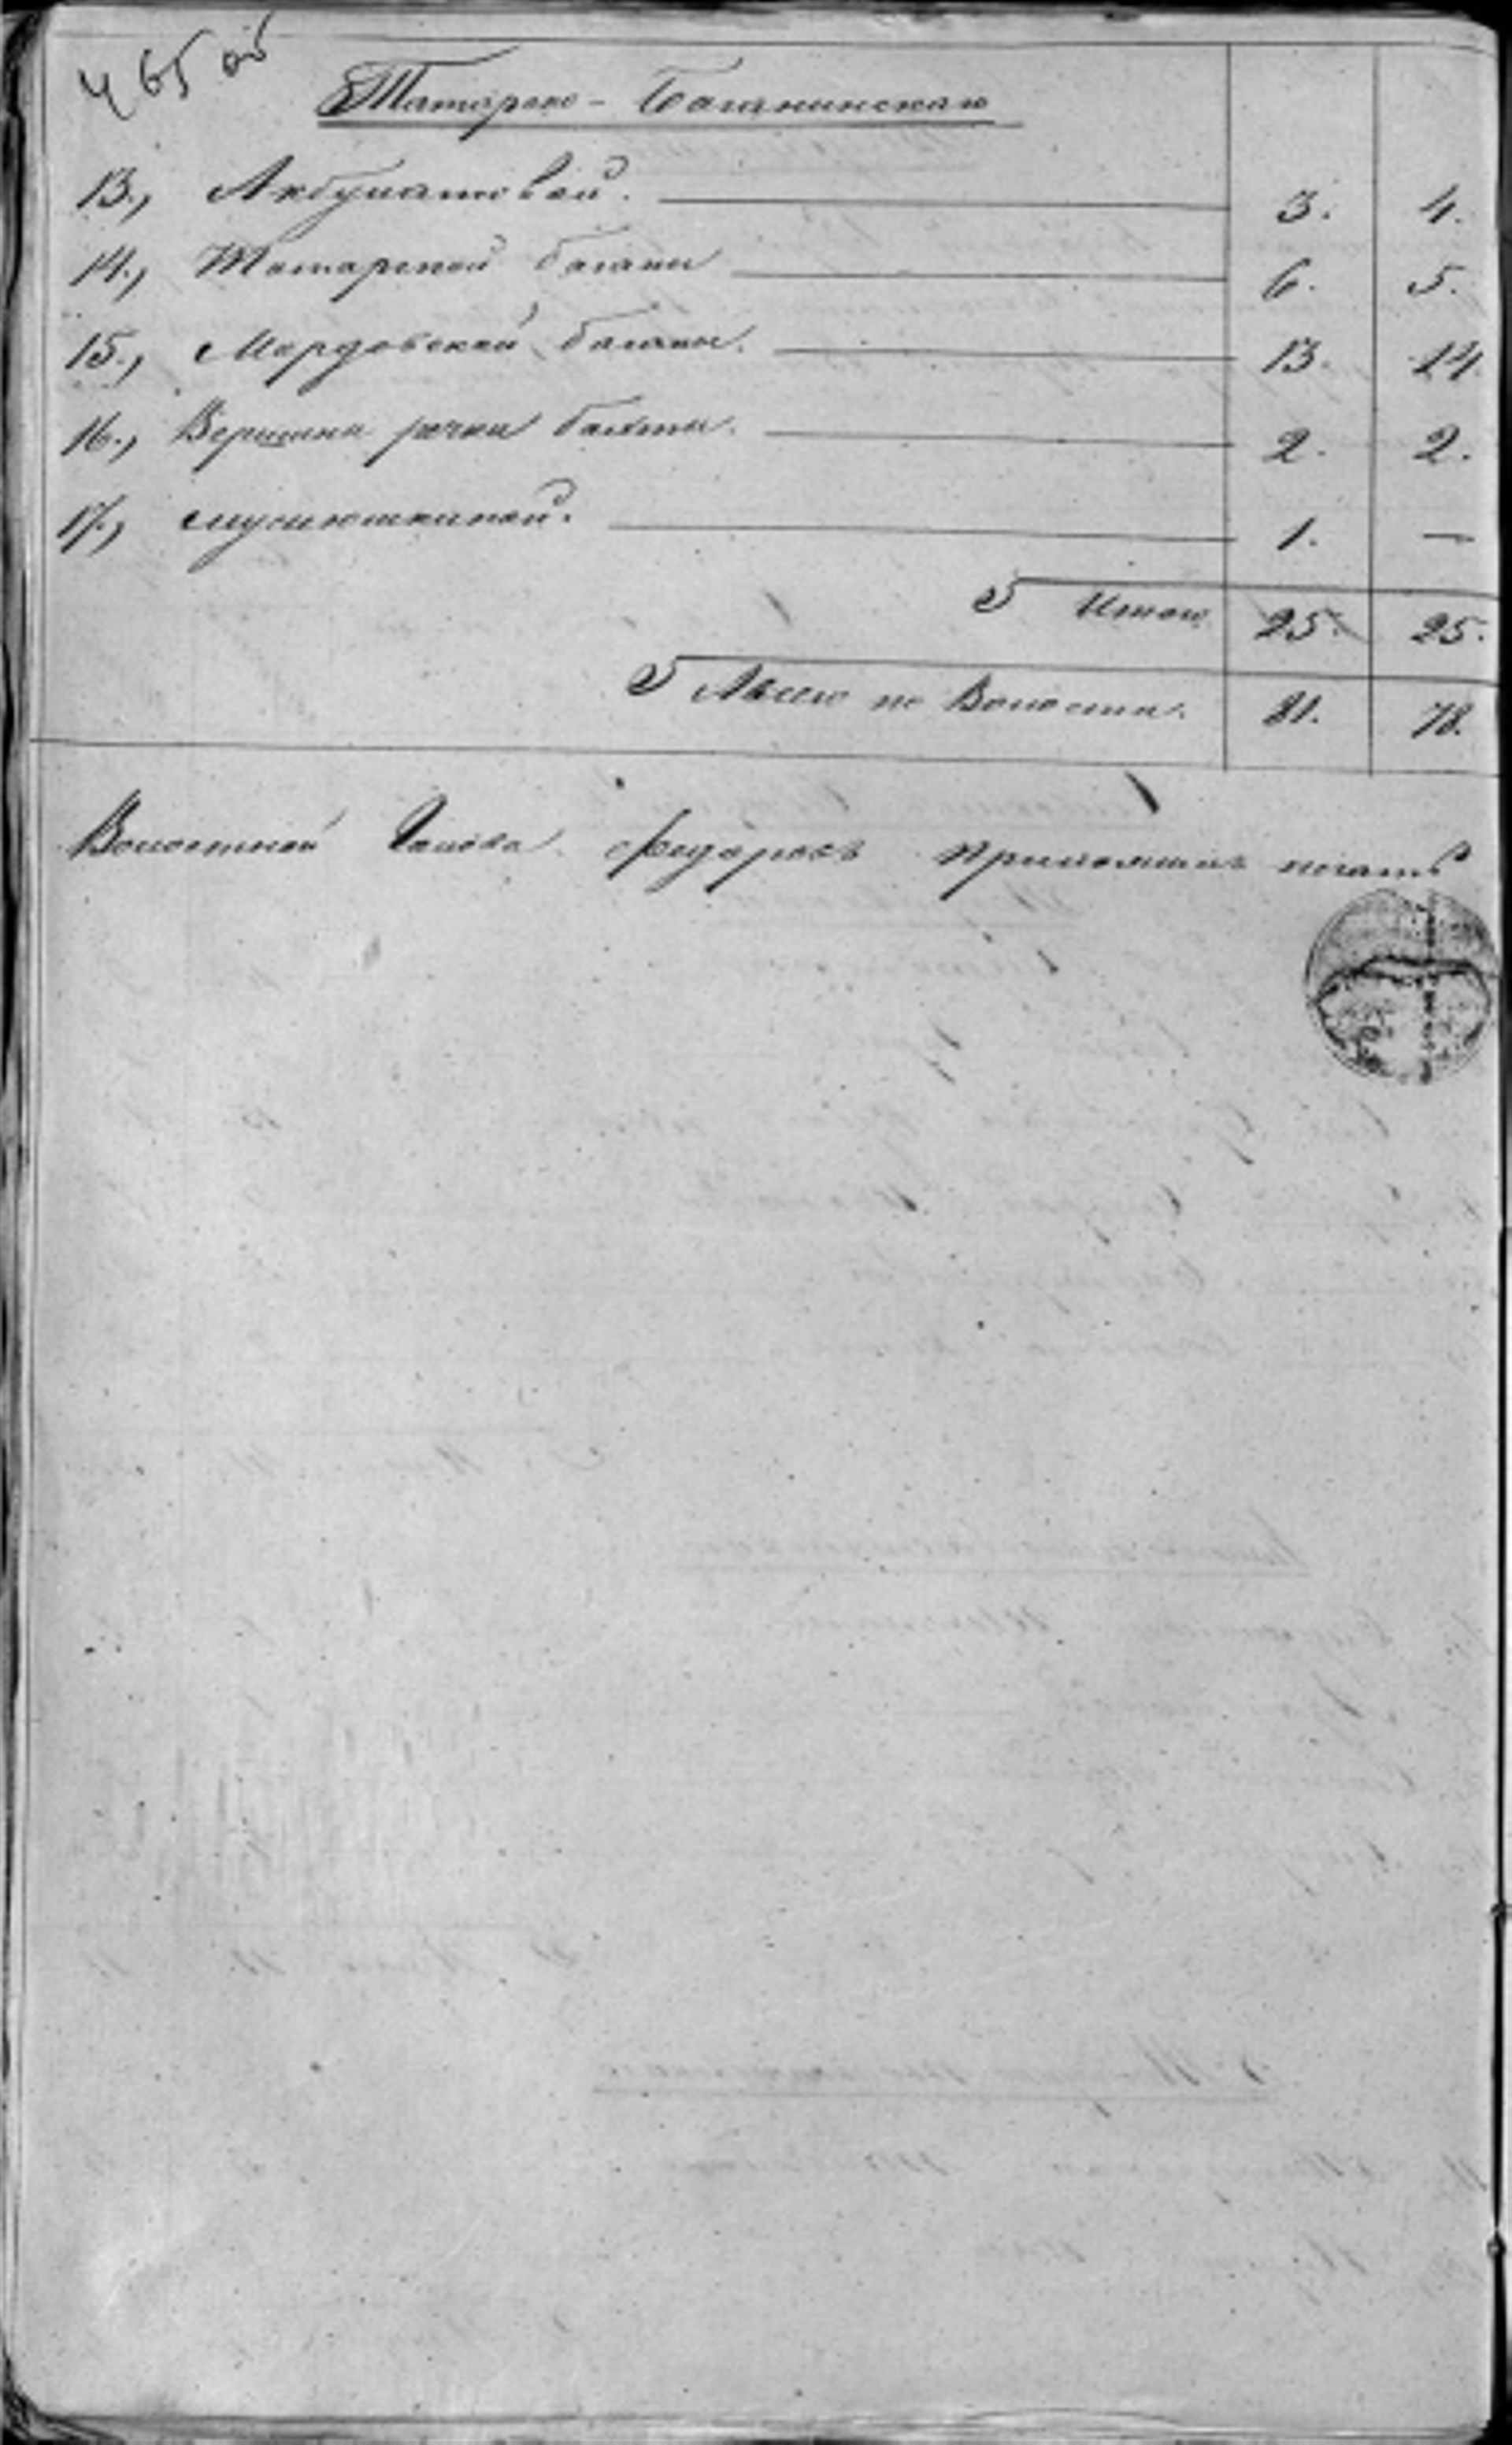 465 об
Татарско - Баганинская
13., Акбулатовой. 3. 4.
14., Татарской баганы 6. 5.
15., Мордовской баганы. 13. 14.
16., Вершина речки бахты. 2. 2.
17., 1. —
Итого 25. 25.
А всего по Волости. 81. 78.
Волостной Голова Федоровъ приложилъ печать